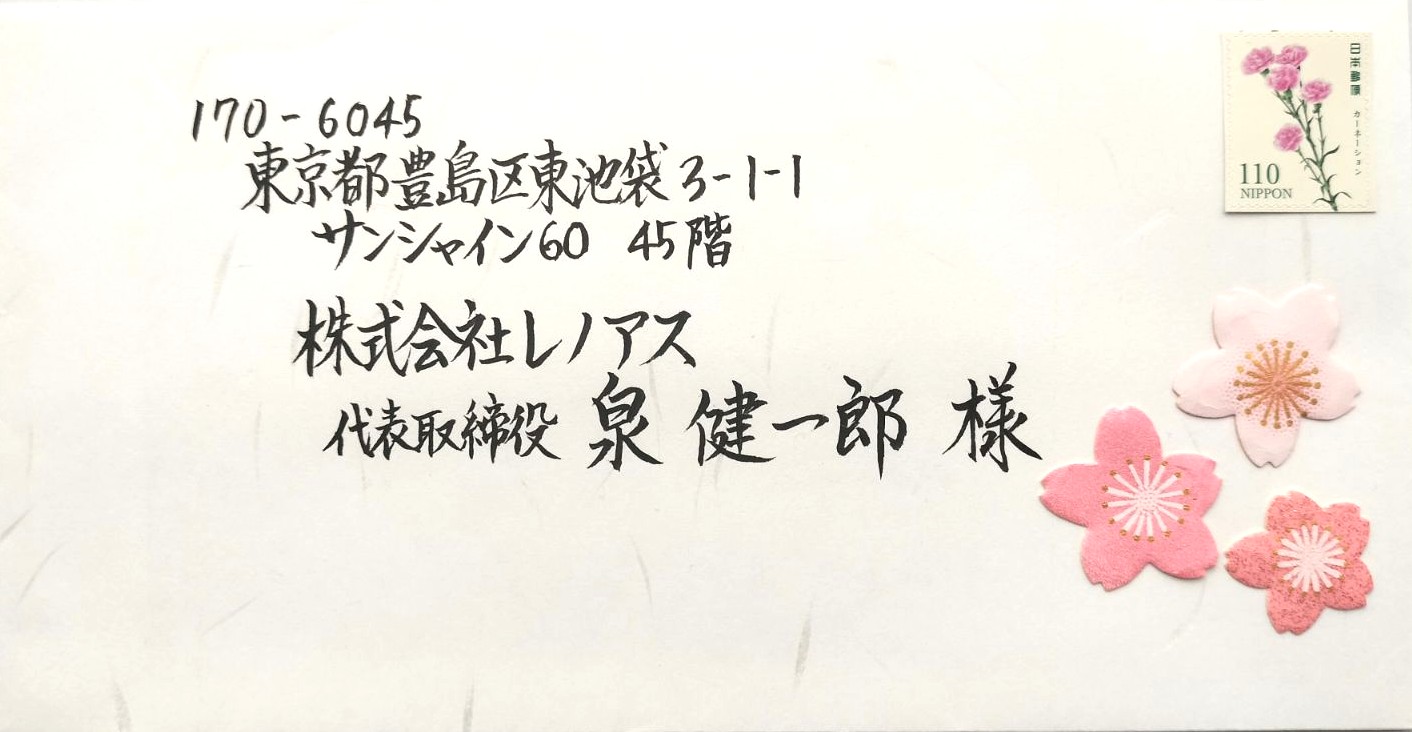 170-6045
東京都豊島区東池袋3-1-1
サンシャイン60 45階
株式会社レノアス
代表取締役 泉 健一郎 様
日本郵便 カーネーション
110
NIPPON